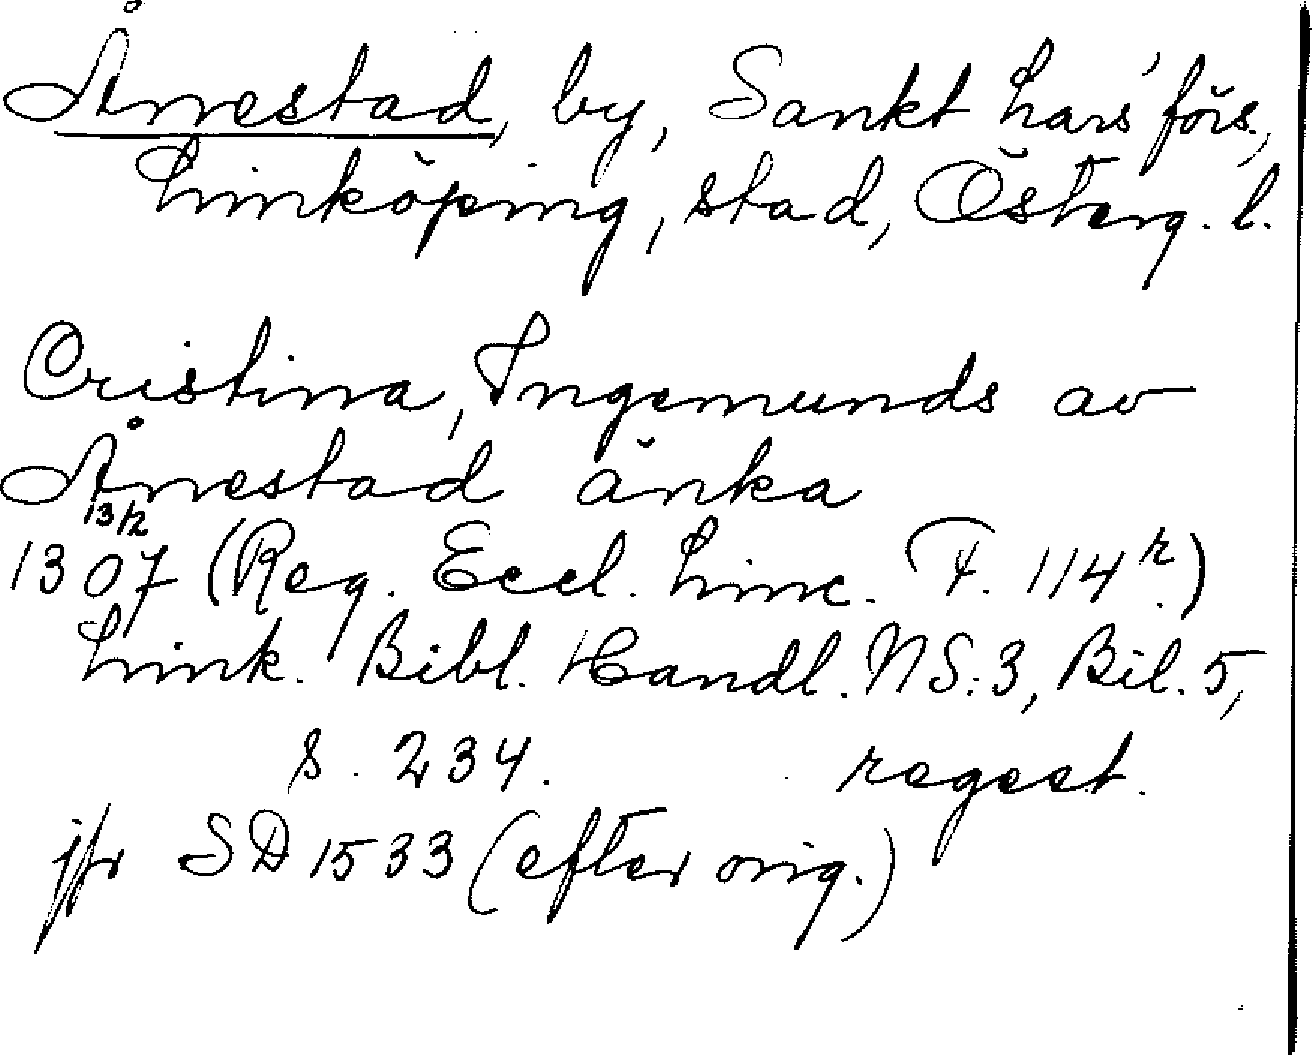 Ånestad, by, Sankt Lars' förs.,
Linköping, stad, Österg. l.
Cristina, Ingemunds av
Ånestad änka
13/2
1307 (Reg. Eccl. Linc. F. 114r.)
Link. Bibl. Handl. NS: 3, Bil. 5,
s. 234. regest.
jfr SD 1533 (efter orig.)